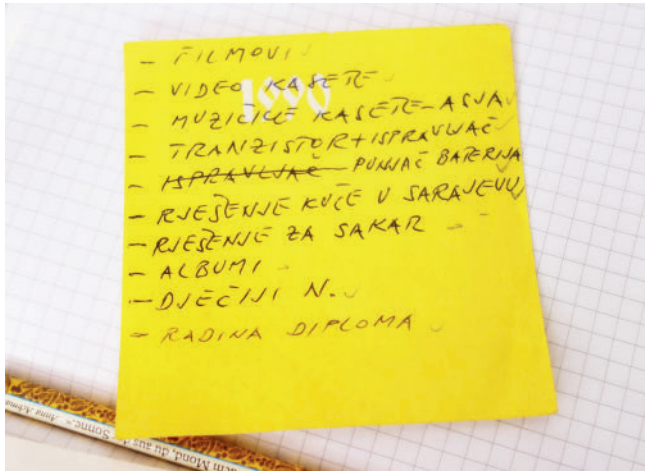 - FILMOVI
- VIDEO KASETE
1990
- MUZIČKE KASETE - ASJA
- TRANZISTOR + ISPRAVLJAČ
- ISPRAVLJAČ PUNJAČ BATERIJA
- RJEŠENJE KUĆE U SARAJEVU
- RJEŠENJE ZA SAKAR -
- ALBUMI -
- DJEČIJI N.
- RADINA DIPLOMA
Mond, du aus d Sonne," Anna